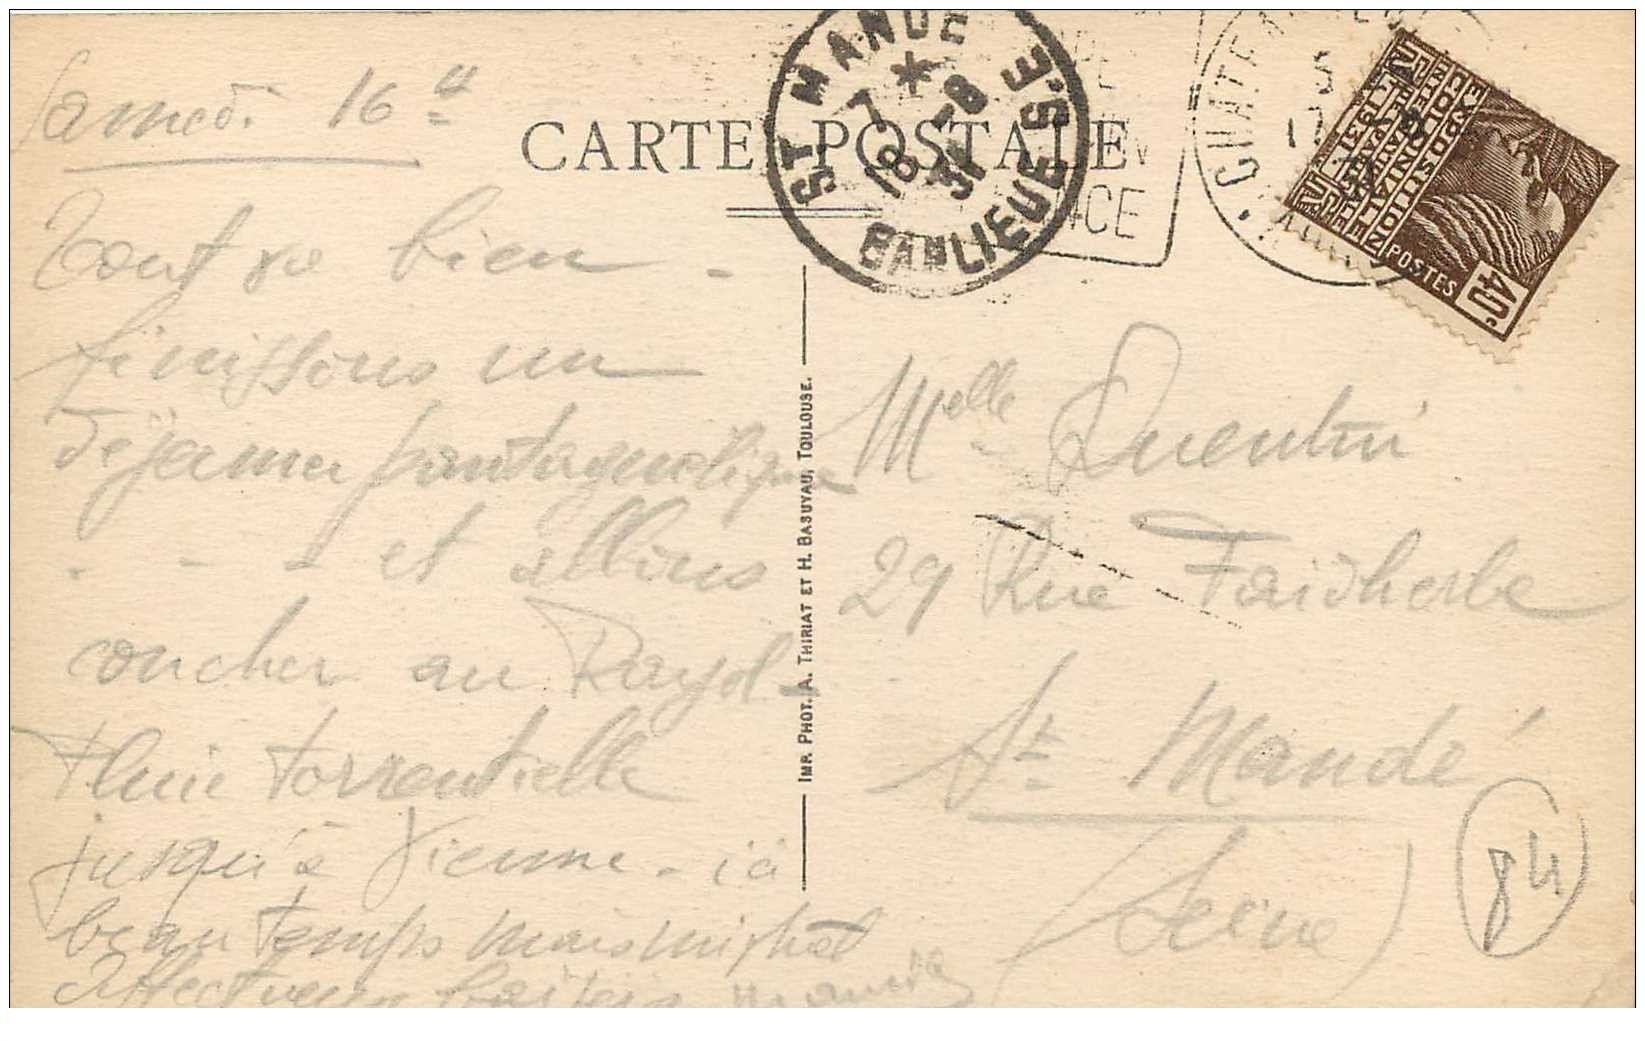 Samedi 16 h
CARTE POSTALE
ST MANDE
7 *
18 -8
31
BANLIEUE S.E
NCE
CHATEAUNEU
5
17
EXPOSITION
COLONIALE
INTERNATIONALE
PARIS 1931
POSTES
40c
Tout va bien -
finissons un
déjeuner pantagruelique
. - - et allons
coucher au Rayol -
Pluie torrentielle
jusqu'à Vienne - ici
beau temps mais mistral
affectueux baisers
IMP. PHOT. A. THIRIAT ET H. BASUYAU, TOULOUSE.
Melle Quentin
29 Rue Faidherbe
St Mandé
(Seine)
84